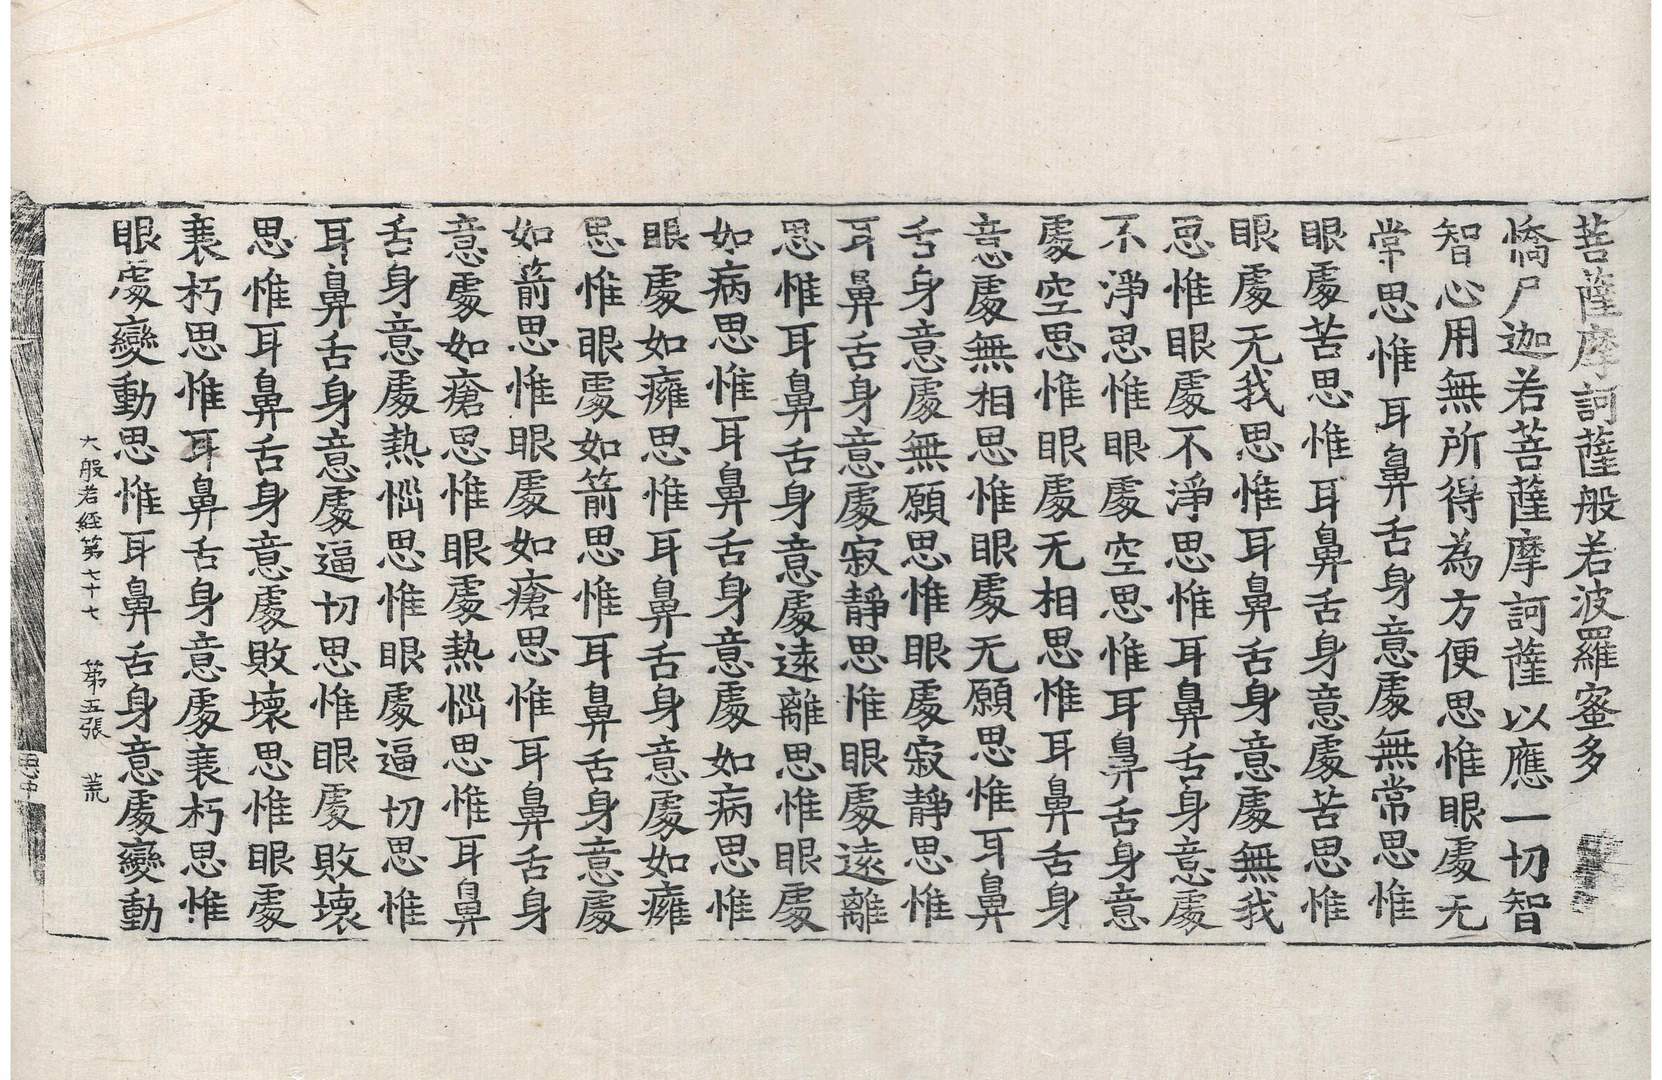 菩薩摩訶薩般若波羅蜜多
憍尸迦若菩薩摩訶薩以應一切智
智心用無所得為方便思惟眼處无
常思惟耳鼻舌身意處無常思惟
眼處苦思惟耳鼻舌身意處苦思惟
眼處无我思惟耳鼻舌身意處無我
思惟眼處不淨思惟耳鼻舌身意處
不淨思惟眼處空思惟耳鼻舌身意
處空思惟眼處无相思惟耳鼻舌身
意處無相思惟眼處无願思惟耳鼻
舌身意處無願思惟眼處寂靜思惟
耳鼻舌身意處寂靜思惟眼處遠離
思惟耳鼻舌身意處遠離思惟眼處
如病思惟耳鼻舌身意處如病思惟
眼處如癰思惟耳鼻舌身意處如癰
思惟眼處如箭思惟耳鼻舌身意處
如箭思惟眼處如瘡思惟耳鼻舌身
意處如瘡思惟眼處熱惱思惟耳鼻
舌身意處熱惱思惟眼處逼切思惟
耳鼻舌身意處逼切思惟眼處敗壞
思惟耳鼻舌身意處敗壞思惟眼處
衰朽思惟耳鼻舌身意處衰朽思惟
眼處變動思惟耳鼻舌身意處變動
大般若經第七十七 第五張 荒